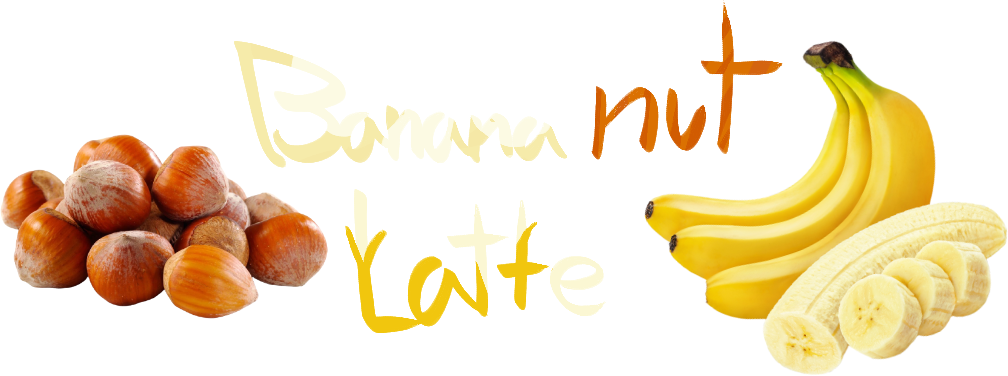 Banana nut
Latte